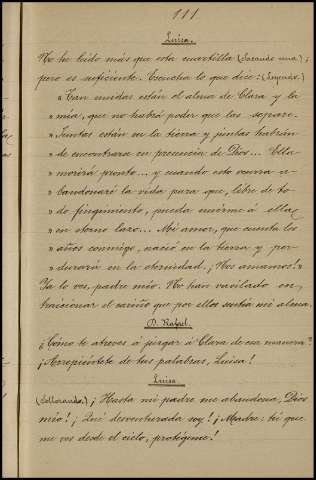 111
Luisa.
No he leido más que esta cuartilla (Sacando una);
pero es suficiente. Escucha lo que dice: (Leyendo.)
"Tan unidas están el alma de Clara y la
"mía, que no habrá poder que las separe.
"Juntas están en la tierra y juntas habrán
"de encontrarse en presencia de Dios... Ella
"morirá pronto... y cuando esto ocurra a-
"bandonaré la vida para que, libre de to-
"do fingimiento, pueda unirme á ella
"en eterno lazo... Mi amor, que cuenta los
"años conmigo, nació en la tierra y per-
"durará en la eternidad. ¡Nos amamos!"
Ya lo ves, padre mío. No han vacilado en
traicionar el cariño que por ellos sentia mi alma.
D. Rafael.
¿Cómo te atreves á juzgar á Clara de esa manera?
¡Arrepiéntete de tus palabras, Luisa!
Luisa.
(Sollozando.) ¡Hasta mi padre me abandona, Dios
mío! ¡Qué desventurada soy! ¡Madre: tú que
me ves desde el cielo, protégeme!